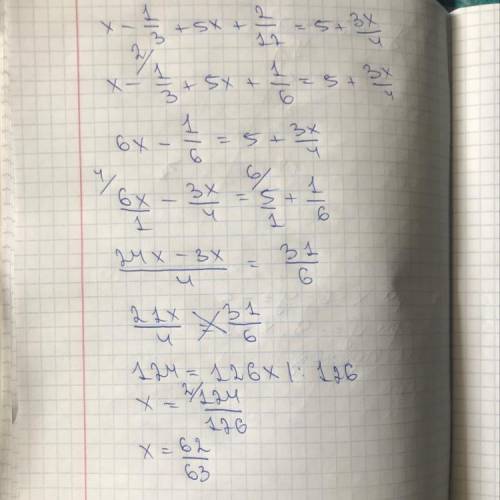 x - 1/3 + 5x + 2/12 = 5 + 3x/4
2/ x - 1/3 + 5x + 1/6 = 5 + 3x/4
6x - 1/6 = 5 + 3x/4
4/ 6x/1 - 3x/4 = 6/ 5/1 + 1/6
24x - 3x/4 = 31/6
21x/4 = 31/6
124 = 126x |: 126
x = 2/ 124/126
x = 62/63